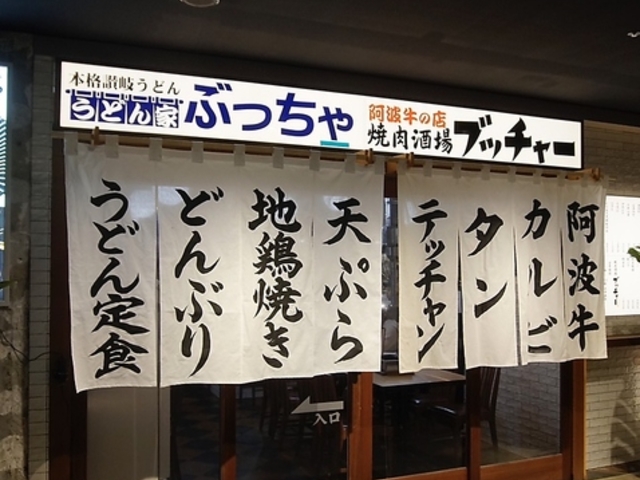 本格讃岐うどん
うどん家
ぶっちゃ
阿波牛の店
焼肉酒場
ブッチャー
阿波牛
カルビ
タン
テッチャン
天ぷら
地鶏焼き
どんぶり
うどん定食
入口